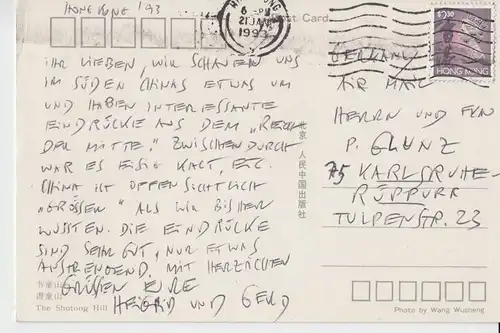 HONG KONG '93
Post Card
6 - PM
21 JA
1993
$2.30
HONG KONG
IHR LIEBEN, WIR SCHAUEN UNS
IM SÜDEN CHINAS ETWAS UM
UND HABEN INTERESSANTE
EINDRÜCKE AUS DEM „REICH
DER MITTE." ZWISCHENDURCH
WAR ES EISIG KALT, ETC.
CHINA IST OFFENSICHTLICH
„GRÖSSER" ALS WIR BISHER
WUSSTEN. DIE EINDRÜCKE
SIND SEHR GUT, NUR ETWAS
ANSTRENGEND. MIT HERZLICHEN
GRÜSSEN EURE
HEIGRID UND GERD
GERMANY
AIR MAIL
HERRN UND FRAU
P. GLUNZ
75 KARLSRUHE-
RÜPPURR
TULPENSTR. 23
北京 人民中国出版社
书童山
The Shutong Hill
Photo by Wang Wusheng